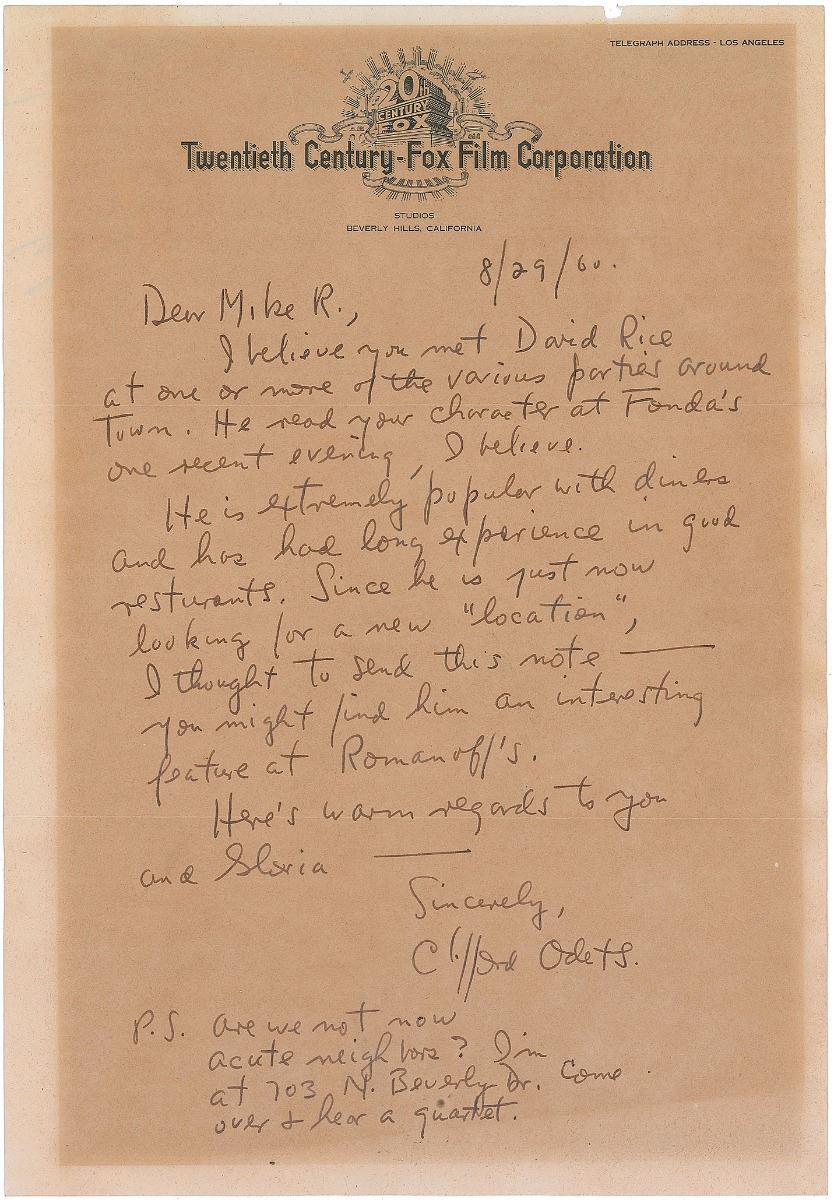 TELEGRAPH ADDRESS - LOS ANGELES
20th
CENTURY
FOX
Twentieth Century-Fox Film Corporation
STUDIOS
BEVERLY HILLS, CALIFORNIA
8/29/60.
Dear Mike R.,
I believe you met David Rice
at one or more of the various parties around
Town. He read your character at Fonda's
one recent evening, I believe.
He is extremely popular with diners
and has had long experience in good
resturants. Since he is just now
looking for a new "location",
I thought to send this note —
you might find him an interesting
feature at Romanoff's.
Here's warm regards to you
and Gloria —
Sincerely,
Clifford Odets.
P.S. are we not now
acute neighbors? I'm
at 703 N. Beverly Dr. Come
over & hear a quartet.